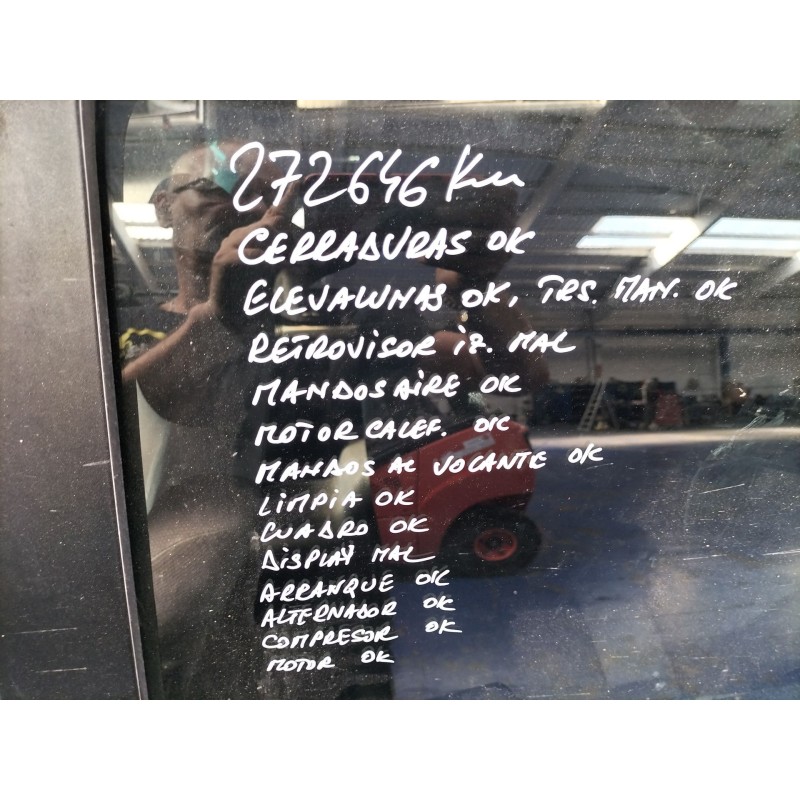 272646 Km
CERRADURAS OK
ELEVALUNAS OK, TRS. MAN. OK
RETROVISOR iz. MAL
MANDOS AiRE OK
MOTOR CALEF. OK
MANDOS AL VOLANTE OK
LiMPiA OK
CUADRO OK
DiSPLAY MAL
ARRANQUE OK
ALTERNADOR OK
COMPRESOR OK
MOTOR OK